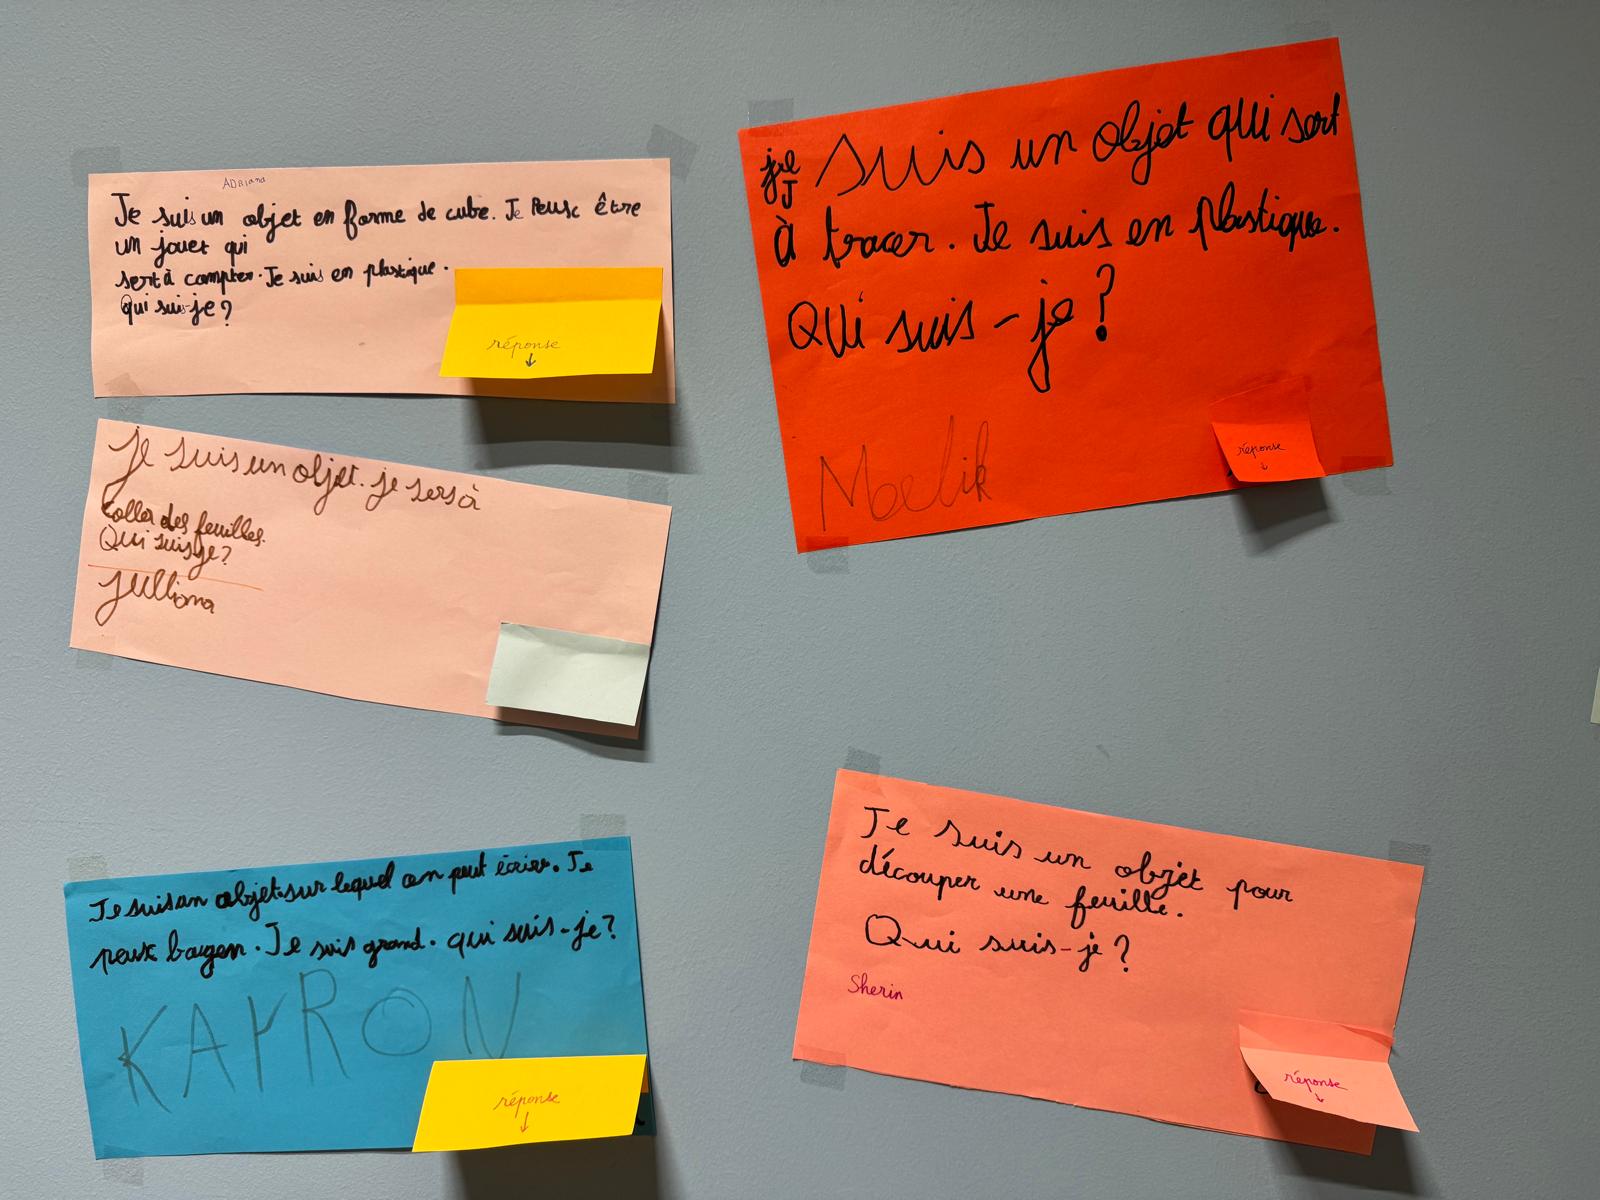 ADRiana
Je suis un objet en forme de cube. Je Peusc être
un jouet qui
sert à compter. Je suis en plastique.
qui suis-je ?
réponse
↓
je suis un objet qui sert
J
à tracer. Je suis en plastique.
QUi suis-je ?
Melik
réponse
↓
je suis un objet. je sers à
coller des feuilles.
Qui suis je ?
julliana
Je suis un objet sur lequel on peut écrire. Je
peusc bouger. Je suis grand. qui suis-je ?
KAYRON
réponse
↓
Je suis un objet pour
découper une feuille.
Qui suis-je ?
Sherin
réponse
↓